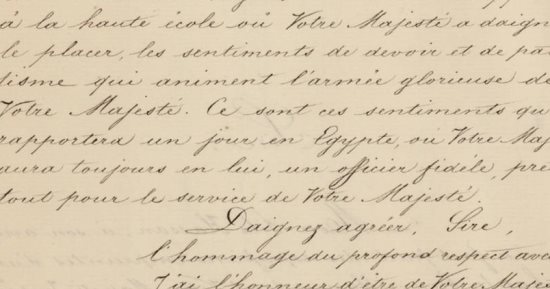 à la haute école où Votre Majesté a daign
le placer, les sentiments de devoir et de pa
tisme qui animent l'armée glorieuse de
Votre Majesté. Ce sont ces sentiments qu
rapportera un jour en Egypte, où Votre Maj
aura toujours en lui, un officier fidèle, pre
tout pour le service de Votre Majesté.
Daignez agréer, Sire,
l'hommage du profond respect avec
J'ai l'honneur d'être de Votre Majes